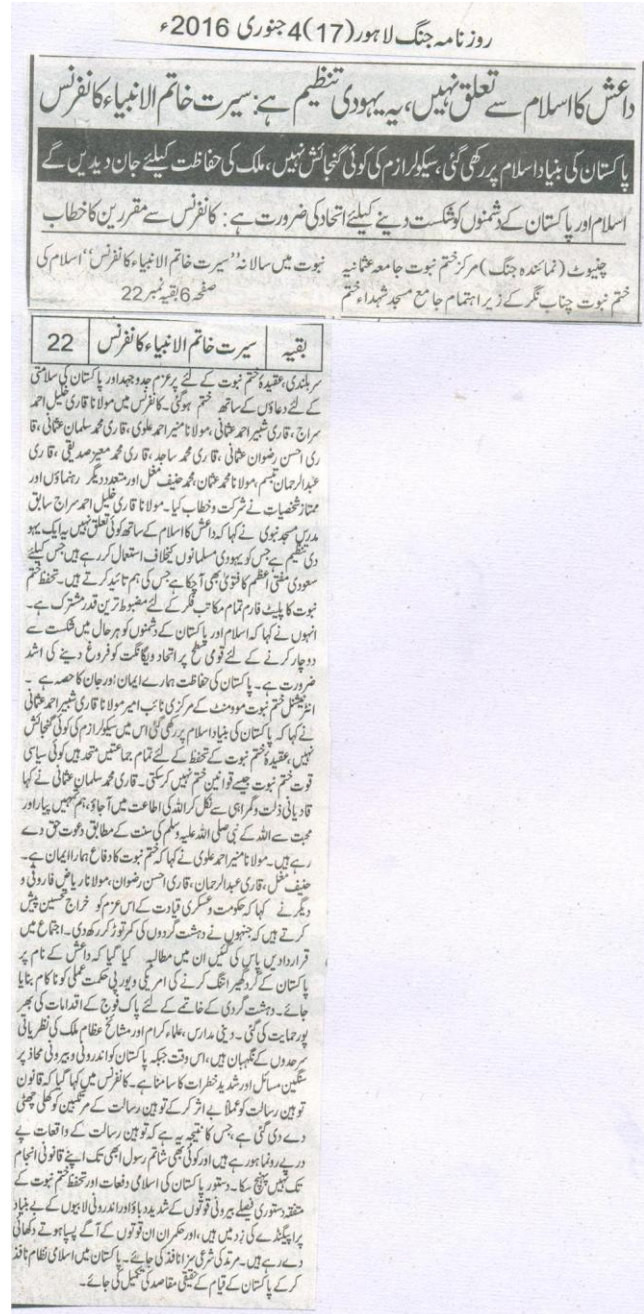 روزنامہ جنگ لاہور (17) 4 جنوری 2016ء
داعش کا اسلام سے تعلق نہیں، یہ یہودی تنظیم ہے: سیرت خاتم الانبیاء کانفرنس
پاکستان کی بنیاد اسلام پر رکھی گئی، سیکولرازم کی کوئی گنجائش نہیں، ملک کی حفاظت کیلئے جان دیدیں گے
اسلام اور پاکستان کے دشمنوں کو شکست دینے کیلئے اتحاد کی ضرورت ہے: کانفرنس سے مقررین کا خطاب
چنیوٹ (نمائندہ جنگ) مرکز ختم نبوت جامعہ عثمانیہ
ختم نبوت چناب نگر کے زیر اہتمام جامع مسجد شہداء ختم
نبوت میں سالانہ ’’سیرت خاتم الانبیاء کانفرنس‘‘ اسلام کی
صفحہ 6 بقیہ نمبر 22
بقیہ سیرت خاتم الانبیاء کانفرنس 22
سربلندی، عقیدۂ ختم نبوت کے لئے پرعزم جدوجہد اور پاکستان کی سلامتی
کے لئے دعاؤں کے ساتھ ختم ہوگئی۔ کانفرنس میں مولانا قاری خلیل احمد
سراج، قاری شبیر احمد عثمانی، مولانا منیر احمد علوی، قاری محمد سلمان عثمانی، قا
ری احسن رضوان عثمانی، قاری محمد ساجد، قاری محمد معیز صدیقی، قاری
عبدالرحمان تبسم، مولانا محمد عثمان، محمد حنیف مغل اور متعدد دیگر رہنماؤں اور
ممتاز شخصیات نے شرکت و خطاب کیا۔ مولانا قاری خلیل احمد سراج سابق
مدرس مسجد نبوی نے کہا کہ داعش کا اسلام کے ساتھ کوئی تعلق نہیں یہ ایک یہو
دی تنظیم ہے جس کو یہودی مسلمانوں کیخلاف استعمال کر رہے ہیں جس کیلئے
سعودی مفتی اعظم کا فتویٰ بھی آچکا ہے جس کی ہم تائید کرتے ہیں۔ تحفظ ختم
نبوت کا پلیٹ فارم تمام مکاتب فکر کے لئے مضبوط ترین قدر مشترک ہے۔
انہوں نے کہا کہ اسلام اور پاکستان کے دشمنوں کو ہر حال میں شکست سے
دوچار کرنے کے لئے قومی سطح پر اتحاد و یگانگت کو فروغ دینے کی اشد
ضرورت ہے۔ پاکستان کی حفاظت ہمارے ایمان اور جان کا حصہ ہے۔
انٹرنیشنل ختم نبوت موومنٹ کے مرکزی نائب امیر مولانا قاری شبیر احمد عثمانی
نے کہا کہ پاکستان کی بنیاد اسلام پر رکھی گئی اس میں سیکولرازم کی کوئی گنجائش
نہیں، عقیدۂ ختم نبوت کے تحفظ کے لئے تمام جماعتیں متحد ہیں کوئی سیاسی
قوت ختم نبوت جیسے قوانین ختم نہیں کر سکتی۔ قاری محمد سلمان عثمانی نے کہا
قادیانی ذلت و گمراہی سے نکل کر اللہ کی اطاعت میں آجاؤ، ہم تمہیں پیار اور
محبت سے اللہ کے نبی صلی اللہ علیہ وسلم کی سنت کے مطابق دعوت حق دے
رہے ہیں۔ مولانا منیر احمد علوی نے کہا کہ ختم نبوت کا دفاع ہمارا ایمان ہے۔
حنیف مغل، قاری عبدالرحمان، قاری احسن رضوان، مولانا ریاض فاروقی و
دیگر نے کہا کہ حکومت و عسکری قیادت کے اس عزم کو خراج تحسین پیش
کرتے ہیں کہ جنہوں نے دہشت گردوں کی کمر توڑ کر رکھ دی۔ اجتماع میں
قراردادیں پاس کی گئیں ان میں مطالبہ کیا گیا کہ داعش کے نام پر
پاکستان کے گرد گھیرا تنگ کرنے کی امریکی و یورپی حکمت عملی کو ناکام بنایا
جائے۔ دہشت گردی کے خاتمے کے لئے پاک فوج کے اقدامات کی بھر
پور حمایت کی گئی۔ دینی مدارس، علماء کرام اور مشائخ عظام ملک کی نظریاتی
سرحدوں کے نگہبان ہیں، اس وقت جبکہ پاکستان کو اندرونی و بیرونی محاذ پر
سنگین مسائل اور شدید خطرات کا سامنا ہے۔ کانفرنس میں کہا گیا کہ قانون
توہین رسالت کو عملاً بے اثر کر کے توہین رسالت کے مرتکبین کو کھلی چھٹی
دے دی گئی ہے، جس کا نتیجہ یہ ہے کہ توہین رسالت کے واقعات پے
در پے رونما ہو رہے ہیں اور کوئی بھی شاتم رسول ابھی تک اپنے قانونی انجام
تک نہیں پہنچ سکا۔ دستور پاکستان کی اسلامی دفعات اور تحفظ ختم نبوت کے
متفقہ دستوری فیصلے بیرونی قوتوں کے شدید دباؤ اور اندرونی لابیوں کے بے بنیاد
پراپیگنڈے کی زد میں ہیں، اور حکمران ان قوتوں کے آگے پسپا ہوتے دکھائی
دے رہے ہیں۔ مرتد کی شرعی سزا نافذ کی جائے۔ پاکستان میں اسلامی نظام نافذ
کر کے پاکستان کے قیام کے حقیقی مقاصد کی تکمیل کی جائے۔